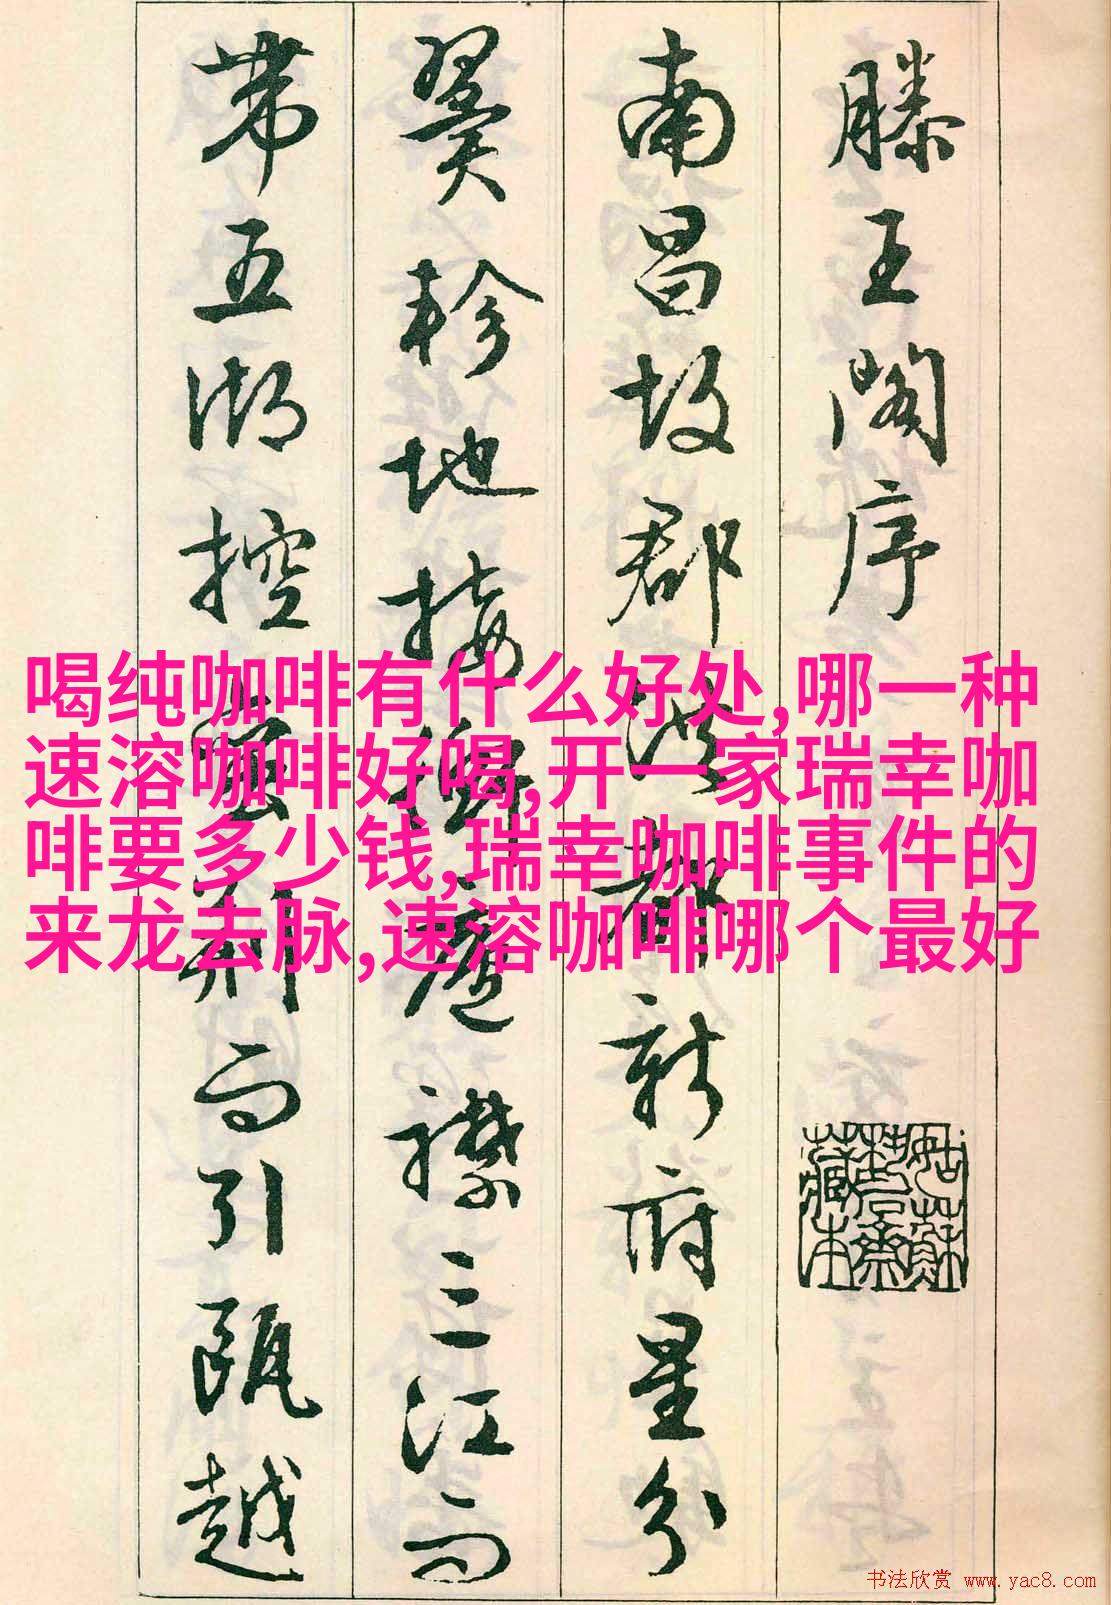 滕王阁序
南昌故郡洪都新府星分
翼轸地接衡庐襟三江而
带五湖控蛮荆而引瓯越
喝纯咖啡有什么好处,哪一种
速溶咖啡好喝,开一家瑞幸咖
啡要多少钱,瑞幸咖啡事件的
来龙去脉,速溶咖啡哪个最好
姑苏
藏本
书法欣赏 www.yac8.com